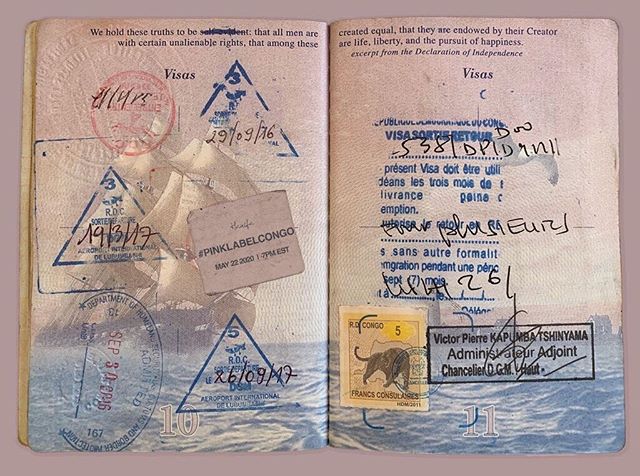 We hold these truths to be self-evident: that all men are
with certain unalienable rights, that among these
Visas
21/4/15
3
29/09/16
3
R.D.C.
19/3/17
AEROPORT INTERNATIONAL
DE LUBUMBASHI
thurfir
#PINKLABELCONGO
MAY 22 2020 | 7PM EST
DEPARTMENT OF HOMELAND
SEP 30 2016
AND BORDER PROTECTION
167
3
R.D.C.
26/09/17
AEROPORT INTERNATIONAL
DE LUBUMBASHI
10
created equal, that they are endowed by their Creator
are life, liberty, and the pursuit of happiness.
excerpt from the Declaration of Independence
Visas
VISA SORTIE RETOUR
présent Visa doit être utili
dans les trois mois de
livrance peine
emption.
plusieurs
s sans autre formalit
migration pendant une
sept mois
R.D. CONGO
5
FRANCS CONSULAIRES
HDM/2011
Victor Pierre KAPUMBA TSHINYAMA
Administrateur Adjoint
Chancelier D.G.M./Haut-
11